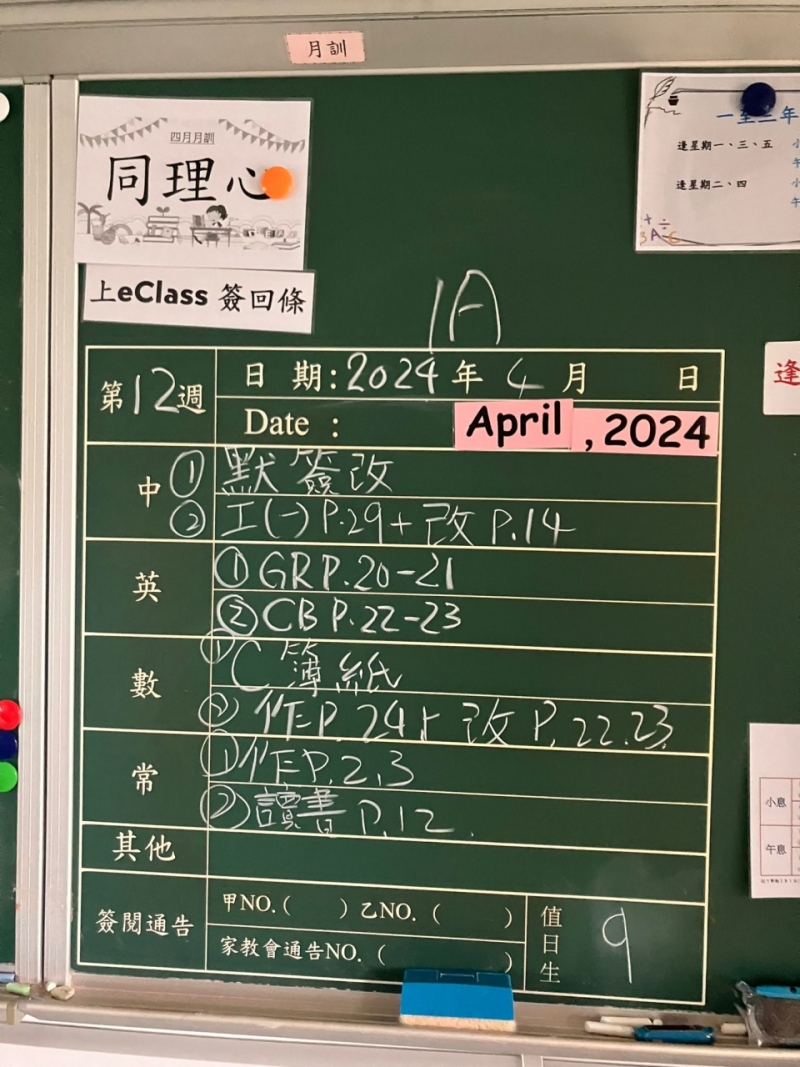 月訓
四月月訓
同理心
上eClass 簽回條
一至三年
逢星期一、三、五
逢星期二、四
1A
第12週
日 期:2024年4月 日
Date :
April , 2024
逢
中
① 默簽改
② 工(一)P.29+改P.14
英
① GR P.20-21
② CB P.22-23
數
① C簿紙
② 作P.24+改P.22.23
常
① 作P.2,3
② 讀書P.12.
其他
簽閱通告
甲NO.( )乙NO.( )
家教會通告NO.( )
值日生
9
小息
午息